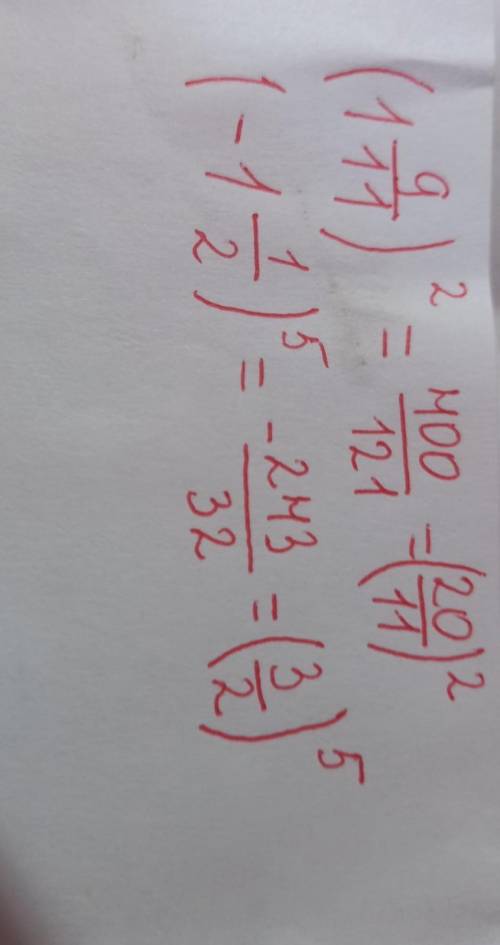 (1 9/11)² = 400/121 = (20/11)²
(-1 1/2)⁵ = -243/32 = (3/2)⁵